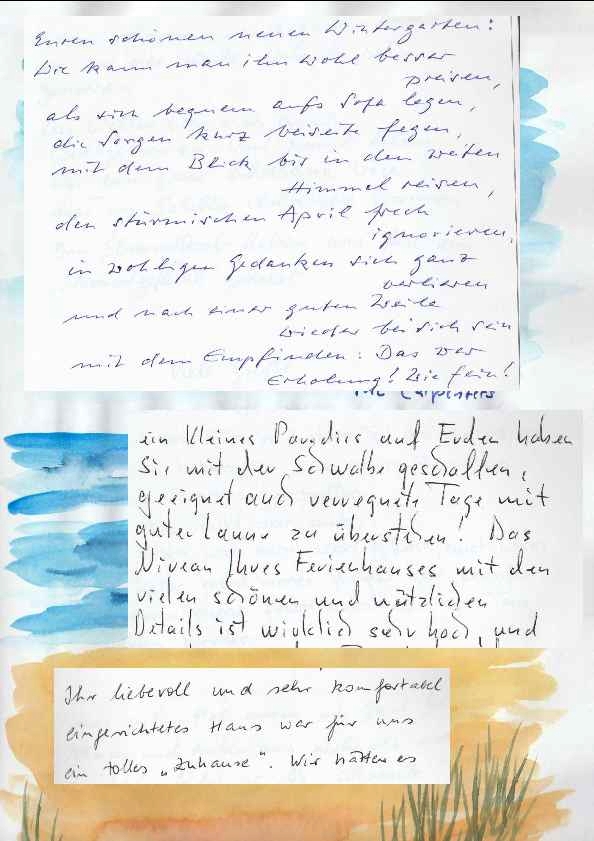 Euren schönen neuen Wintergarten:
Wie kann man ihn wohl besser
preisen,
als sich bequem aufs Sofa legen,
die Sorgen kurz beiseite fegen,
mit dem Blick bis in den weiten
Himmel reisen,
den stürmischen April frech
ignorieren,
in wohligen Gedanken sich ganz
verlieren
und nach einer guten Weile
wieder bei sich sein
mit dem Empfinden: Das war
Erholung! Wie fein!
Carpenters
ein kleines Paradies auf Erden haben
Sie mit der Schwalbe geschaffen,
geeignet auch verregnete Tage mit
guter Laune zu überstehen! Das
Niveau Ihres Ferienhauses mit den
vielen schönen und nützlichen
Details ist wirklich sehr hoch, und
Ihr liebevoll und sehr komfortabel
eingerichtetes Haus war für uns
ein tolles „Zuhause“. Wir hätten es